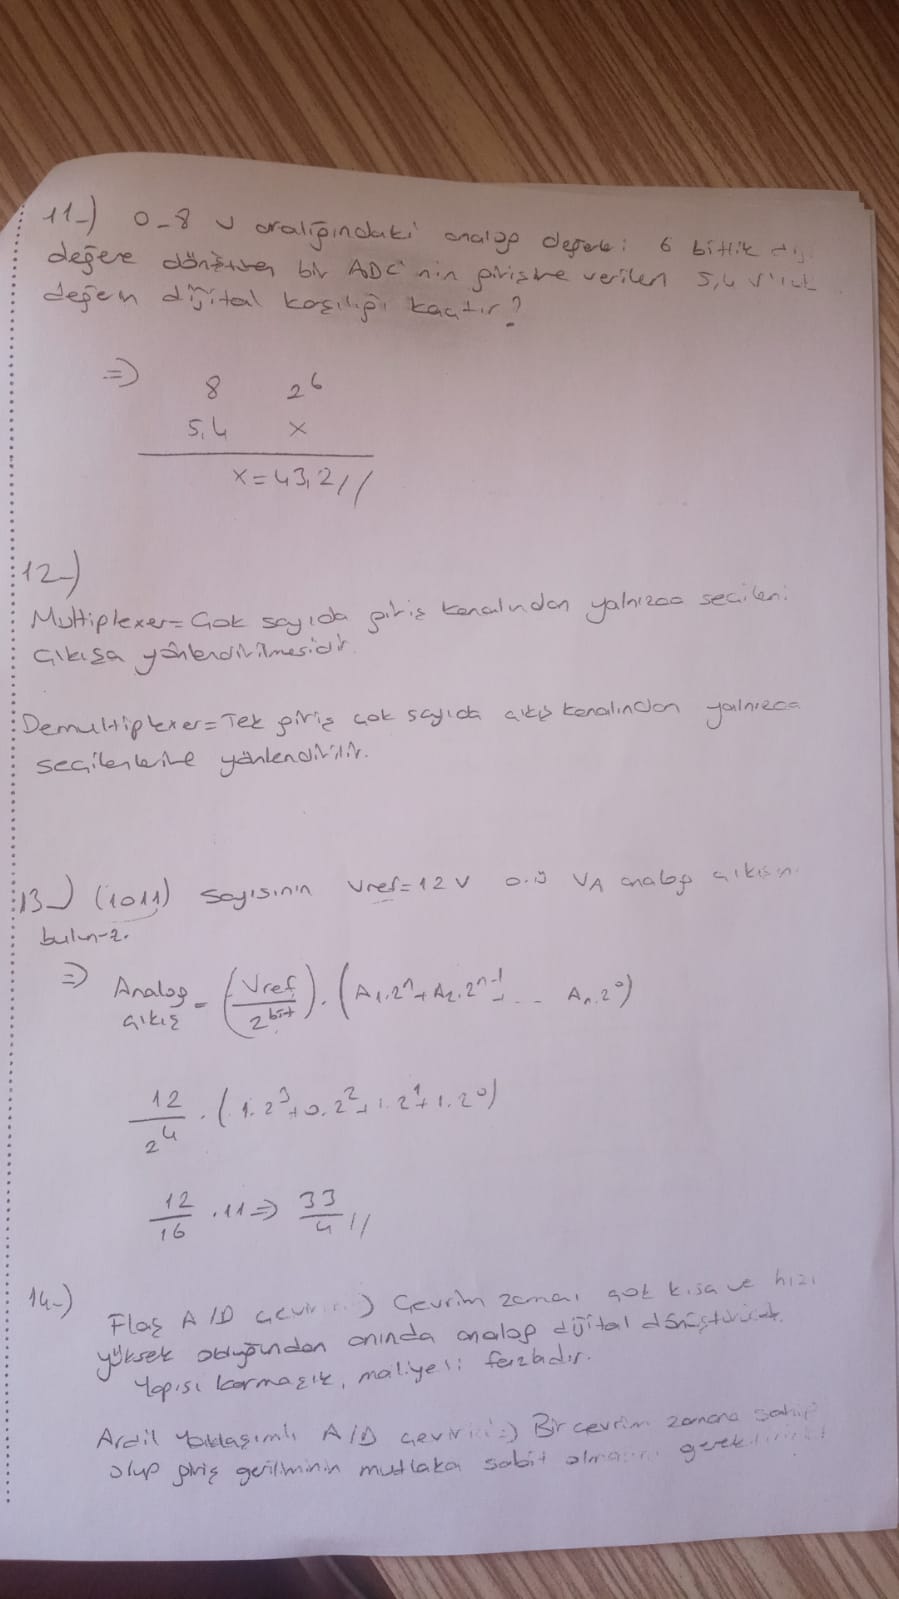 11-) 0-8 V aralığındaki analog değeri 6 bitlik
değere dönüştüren bir ADC'nin girişine verilen 5,4 V'luk
değerin dijital karşılığı kaçtır?
=>
8 2^6
5,4 x
x=43,2//
12-)
Multiplexer= Çok sayıda giriş kanalından yalnızca seçileni
çıkışa yönlendirilmesidir.
Demultiplexer= Tek giriş çok sayıda çıkış kanalından yalnızca
seçilenlerine yönlendirilir.
13-) (1011) sayısının Vref=12 V VA analog çıkışını
bulun-z.
=> Analog çıkış = (Vref/2^bit) . (A1.2^n + A2.2^n-1 + .. An.2^0)
12/2^4 . (1.2^3+0.2^2+1.2^1+1.2^0)
12/16 .11 => 33/4 //
14-)
Flaş A/D çevirici => Çevrim zamanı çok kısa ve hızı
yüksek olduğundan anında analog dijital dönüştürücü.
Yapısı karmaşık, maliyeti fazladır.
Ardıl Yaklaşımlı A/D çevirici => Bir çevrim zamana sahip
olup giriş geriliminin mutlaka sabit olmasını